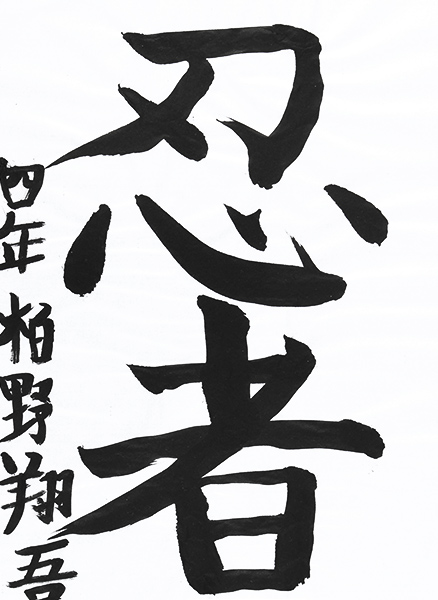 忍者
四年 柏野翔吾